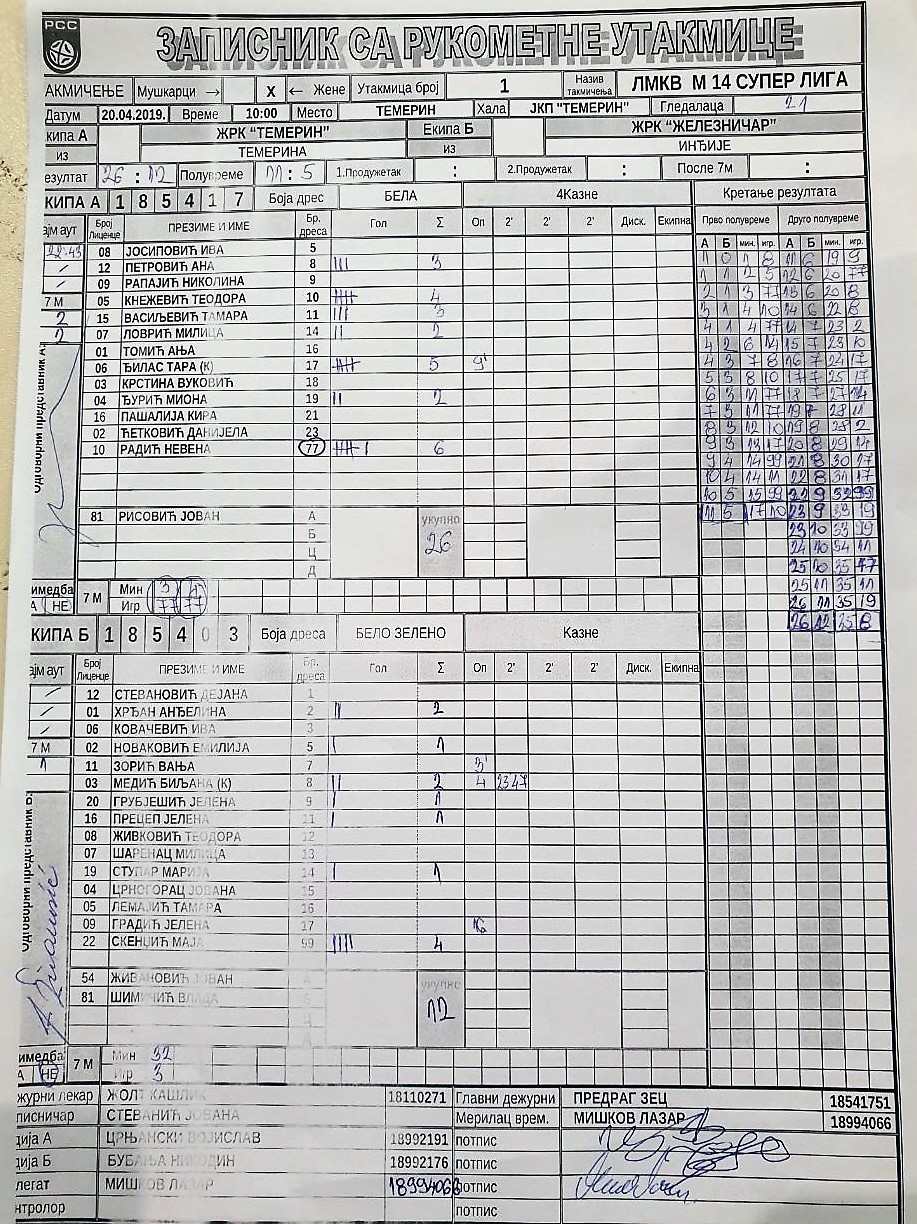 РСС
ЗАПИСНИК СА РУКОМЕТНЕ УТАКМИЦЕ
АКМИЧЕЊЕ Мушкарци → X ← Жене Утакмица број 1 Назив такмичења ЛМКВ М 14 СУПЕР ЛИГА
Датум 20.04.2019. Време 10:00 Место ТЕМЕРИН Хала ЈКП "ТЕМЕРИН" Гледалаца 21
кипа А ЖРК "ТЕМЕРИН" Екипа Б ЖРК "ЖЕЛЕЗНИЧАР"
из ТЕМЕРИНА из ИНЂИЈЕ
езултат 26 : 12 Полувреме 11 : 5 1.Продужетак : 2.Продужетак : После 7м :
КИПА А 1 8 5 4 1 7 Боја дрес БЕЛА 4Казне Кретање резултата
ајм аут Број Лиценце ПРЕЗИМЕ И ИМЕ Бр. дреса Гол Σ Оп 2' 2' 2' Диск. Екипна Прво полувреме Друго полувреме
А Б мин. игр. А Б мин. игр.
22-43 08 ЈОСИПОВИЋ ИВА 5 1 0 1 8 11 6 19 9
/ 12 ПЕТРОВИЋ АНА 8 III 3 1 1 2 5 12 6 20 77
/ 09 РАПАЈИЋ НИКОЛИНА 9 2 1 3 77 13 6 20 8
7 М 05 КНЕЖЕВИЋ ТЕОДОРА 10 4 3 1 4 10 14 6 22 8
2 15 ВАСИЉЕВИЋ ТАМАРА 11 III 3 4 1 4 77 14 7 23 2
2 07 ЛОВРИЋ МИЛИЦА 14 II 2 4 2 6 14 15 7 23 10
01 ТОМИЋ АЊА 16 4 3 7 8 16 7 24 17
06 ЂИЛАС ТАРА (К) 17 5 9' 5 3 8 10 17 7 25 17
03 КРСТИНА ВУКОВИЋ 18 6 3 11 77 18 7 27 14
04 ЂУРИЋ МИОНА 19 II 2 7 3 11 77 19 7 28 11
16 ПАШАЛИЈА КИРА 21 8 3 12 10 19 8 28 2
02 ЋЕТКОВИЋ ДАНИЈЕЛА 23 9 3 13 17 20 8 29 14
10 РАДИЋ НЕВЕНА 77 6 9 4 14 99 21 8 30 17
10 4 14 11 22 8 31 17
10 5 15 99 22 9 32 99
81 РИСОВИЋ ЈОВАН А укупно 26 11 5 17 10 23 9 33 19
Б 23 10 33 99
Ц 24 10 34 11
Д 25 10 35 77
Одговорни представник А.
имедба А НЕ 7 М Мин 3 25 25 11 35 11
Игр 77 77 26 11 35 19
КИПА Б 1 8 5 4 0 3 Боја дреса БЕЛО ЗЕЛЕНО Казне 26 12 35 8
ајм аут Број Лиценце ПРЕЗИМЕ И ИМЕ Бр. дреса Гол Σ Оп 2' 2' 2' Диск. Екипна
/ 12 СТЕВАНОВИЋ ДЕЈАНА 1
/ 01 ХРЂАН АНЂЕЛИНА 2 II 2
/ 06 КОВАЧЕВИЋ ИВА 3
7 М 02 НОВАКОВИЋ ЕМИЛИЈА 5 I 1
1 11 ЗОРИЋ ВАЊА 7 3'
03 МЕДИЋ БИЉАНА (К) 8 II 2 4 2347
20 ГРУБЈЕШИЋ ЈЕЛЕНА 9 I 1
16 ПРЕЦЕП ЈЕЛЕНА 11 I 1
08 ЖИВКОВИЋ ТЕОДОРА 12
07 ШАРЕНАЦ МИЛИЦА 13
19 СТУПАР МАРИЈА 14 I 1
04 ЦРНОГОРАЦ ЈОВАНА 15
05 ЛЕМАЈИЋ ТАМАРА 16
09 ГРАДИЋ ЈЕЛЕНА 17 16
22 СКЕНЏИЋ МАЈА 99 IIII 4
54 ЖИВАНОВИЋ ЈОВАН А укупно 12
81 ШИМИЧИЋ ВЛАДА Б
Одговорни представник Б.
имедба А НЕ 7 М Мин 32
Игр 3
журни лекар ЖОЛТ КАШЛИК 18110271 Главни дежурни ПРЕДРАГ ЗЕЦ 18541751
писничар СТЕВАНИЋ ЈОВАНА Мерилац врем. МИШКОВ ЛАЗАР 18994066
дија А ЦРЊАНСКИ ВОЈИСЛАВ 18992191 потпис
дија Б БУБАЊА НИКОДИН 18992176 потпис
легат МИШКОВ ЛАЗАР 18994066 потпис
нтролор потпис